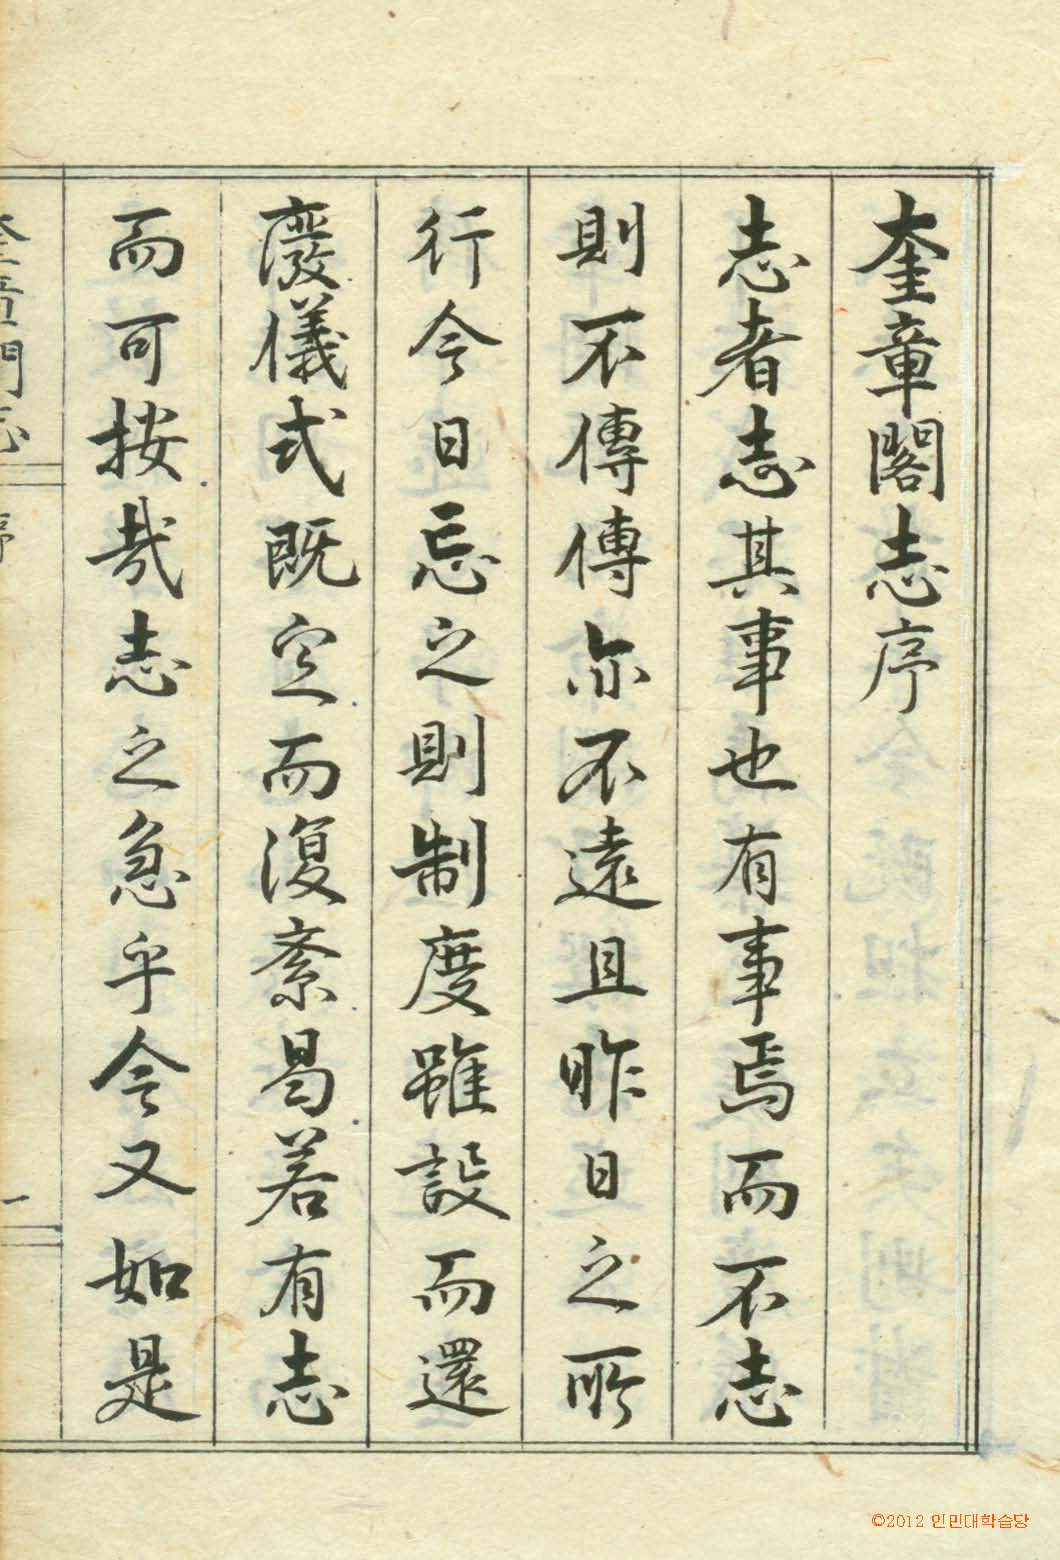 奎章閣志序
志者志其事也有事焉而不志
則不傳傳亦不遠且昨日之所
行今日忘之則制度雖設而還
廢儀式既定而復紊曷若有志
而可按哉志之急乎今又如是
奎章閣志 序 一
©2012 인민대학습당